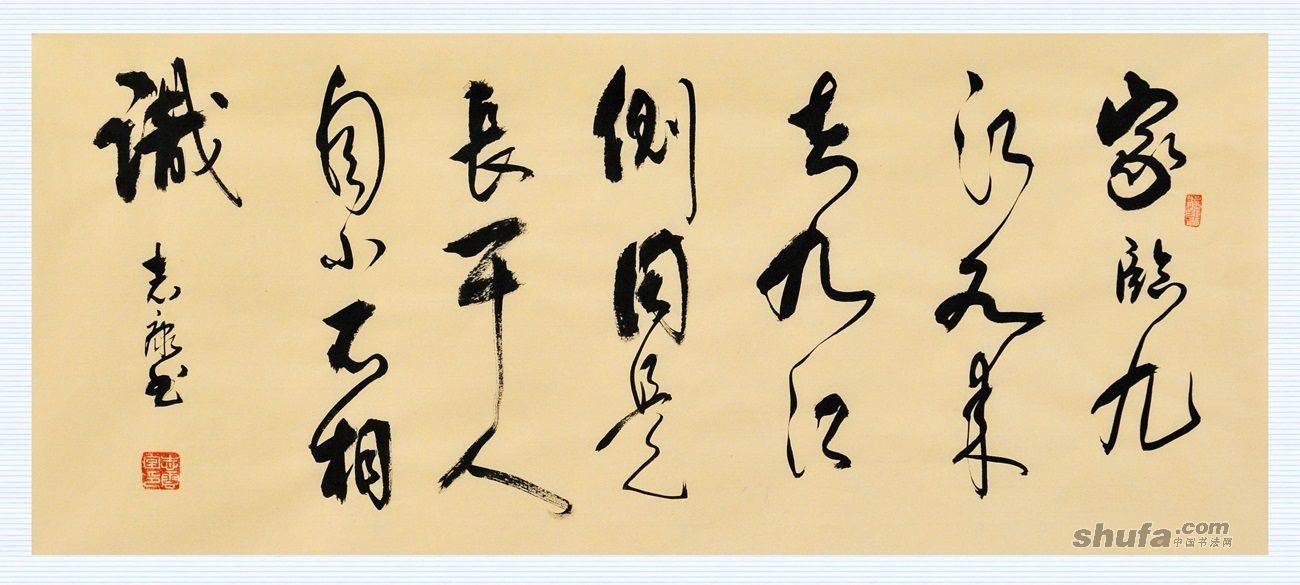 家臨九
江水来
去九江
側同是
長干人
自小不相
識
志 书
shufa.com
中国书法网